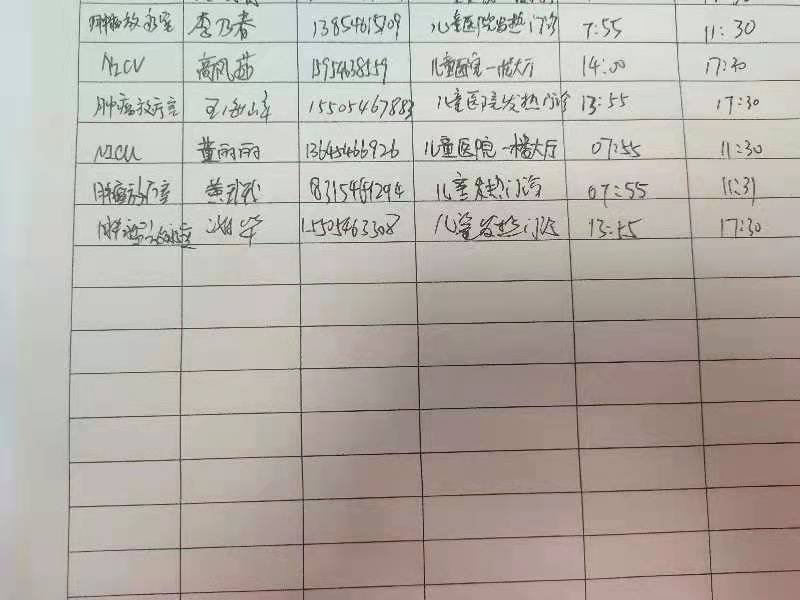 肿瘤放疗室 李乃春 13854615709 儿童医院发热门诊 7:55 11:30
NICU 高风燕 15954638559 儿童医院一楼大厅 14:00 17:30
肿瘤放疗室 15505467883 儿童医院发热门诊 13:55 17:30
NICU 董丽丽 13645466926 儿童医院一楼大厅 07:55 11:30
肿瘤放疗室 8315461294 儿童发热门诊 07:55 11:31
肿瘤 15505463308 儿童发热门诊 13:55 17:30